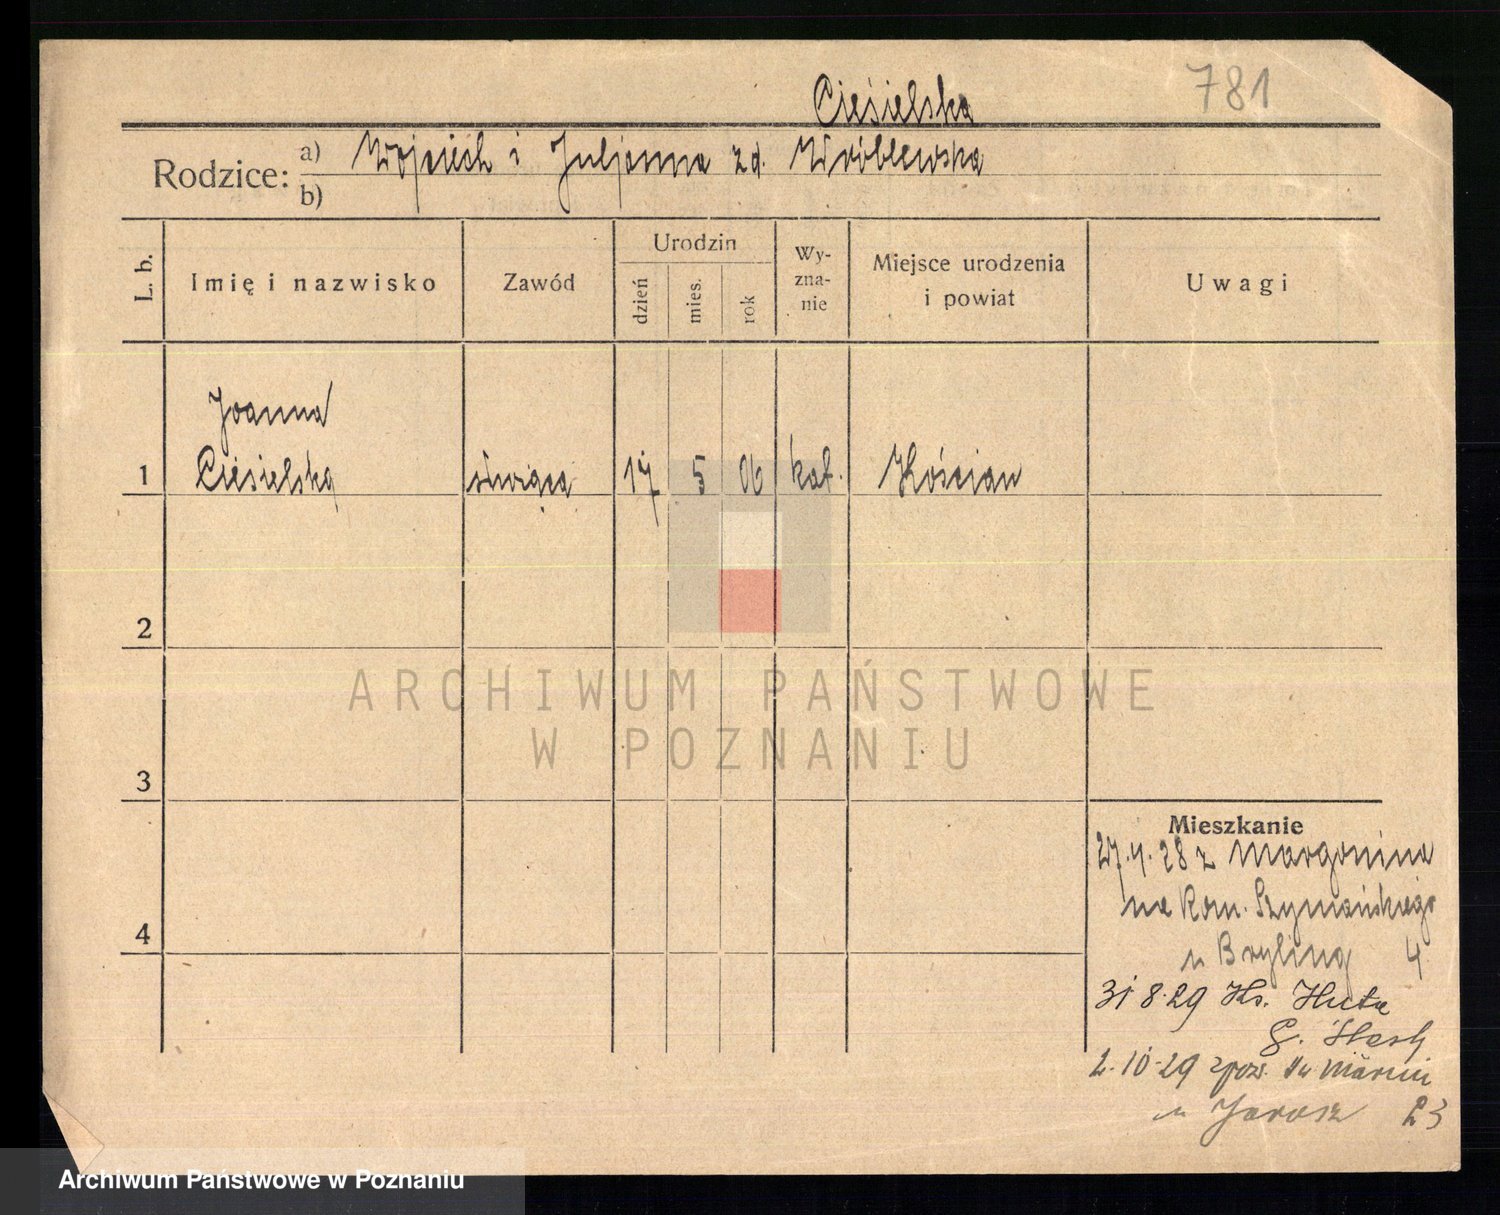 781
Ciesielska
Rodzice: a) Wojciech i Juljanna zd. Wróblewska
b)
L. b. Imię i nazwisko Zawód Urodzin dzień mies. rok Wy-zna-nie Miejsce urodzenia i powiat Uwagi
Joanna
1 Ciesielska służąca 17 5 06 kat. Kościan
2
3
4
ARCHIWUM PAŃSTWOWE
W POZNANIU
Mieszkanie
27.4.28 z Margonina
na Rom. Szymańskiego
u Bryling 4
31 8.29 Ks. Huta
2.10.29 Marcin
u Jarosz 23
Archiwum Państwowe w Poznaniu